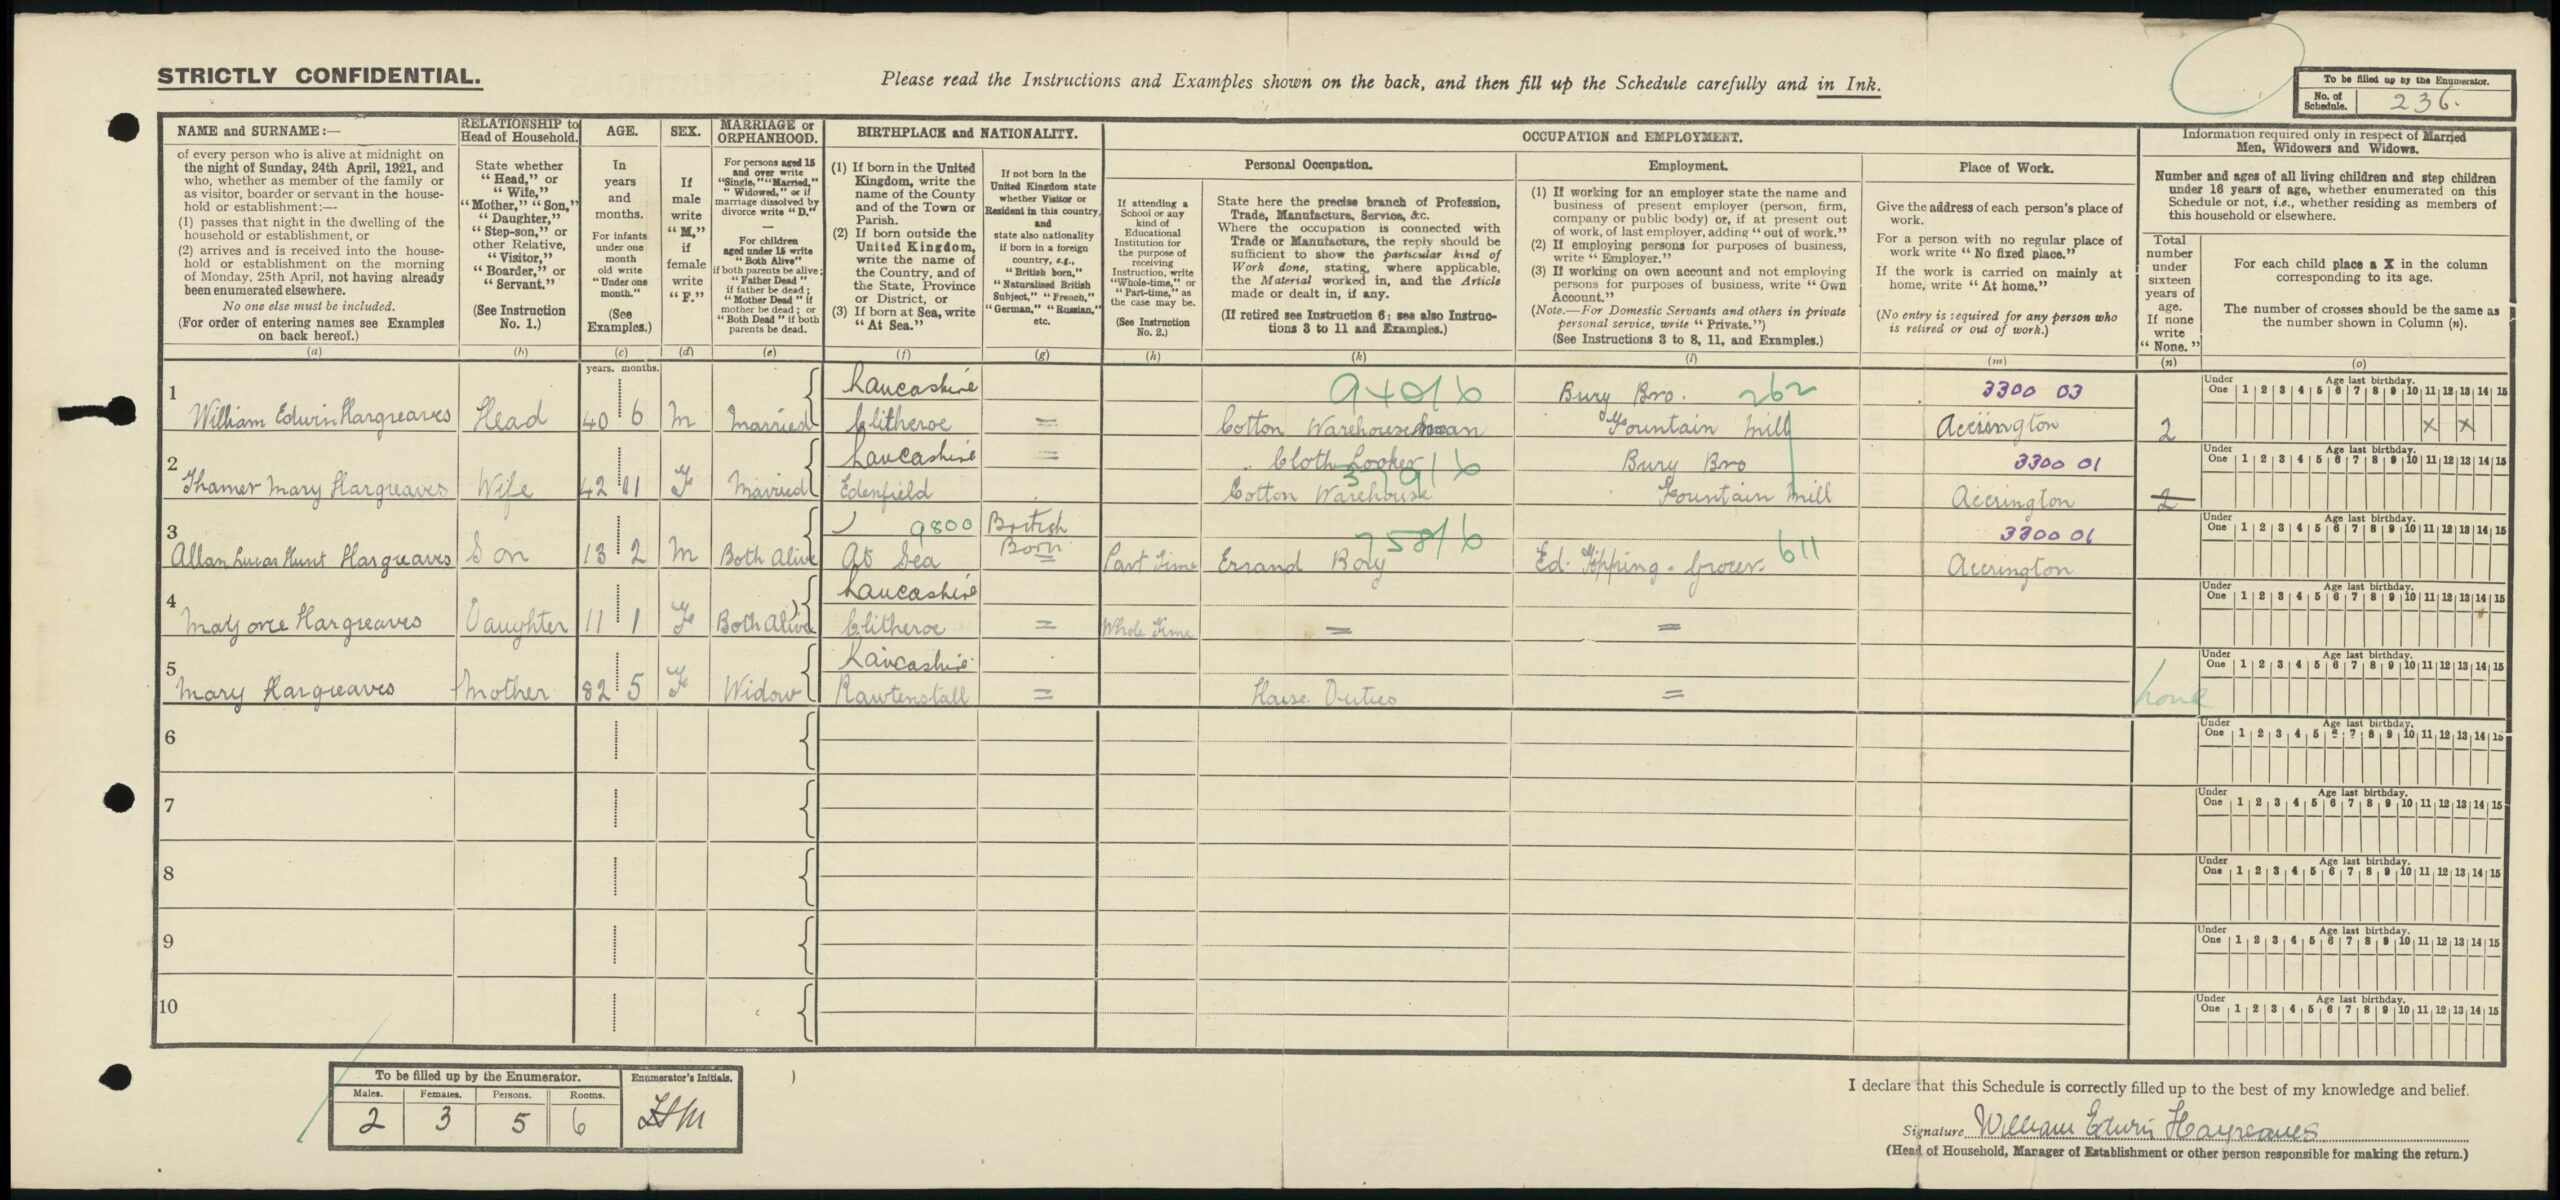 STRICTLY CONFIDENTIAL.
Please read the Instructions and Examples shown on the back, and then fill up the Schedule carefully and in Ink.
To be filled up by the Enumerator.
No. of Schedule. 236.
NAME and SURNAME:—
of every person who is alive at midnight on
the night of Sunday, 24th April, 1921, and
who, whether as member of the family or
as visitor, boarder or servant in the house-
hold or establishment:—
(1) passes that night in the dwelling of the
household or establishment, or
(2) arrives and is received into the house-
hold or establishment on the morning
of Monday, 25th April, not having already
been enumerated elsewhere.
No one else must be included.
(For order of entering names see Examples
on back hereof.)
(a)
RELATIONSHIP to
Head of Household.
State whether
"Head," or
"Wife,"
"Mother," "Son,"
"Daughter,"
"Step-son," or
other Relative,
"Visitor,"
"Boarder," or
"Servant."
(See Instruction
No. 1.)
(b)
AGE.
In
years
and
months.
For infants
under one
month
old write
"Under one
month."
(See
Examples.)
(c)
SEX.
If
male
write
"M,"
if
female
write
"F."
(d)
MARRIAGE or
ORPHANHOOD.
For persons aged 15
and over write
"Single," "Married,"
"Widowed," or if
marriage dissolved by
divorce write "D."
—
For children
aged under 15 write
"Both Alive"
if both parents be alive;
"Father Dead"
if father be dead;
"Mother Dead" if
mother be dead; or
"Both Dead" if both
parents be dead.
(e)
BIRTHPLACE and NATIONALITY.
(1) If born in the United
Kingdom, write the
name of the County
and of the Town or
Parish.
(2) If born outside the
United Kingdom,
write the name of
the Country, and of
the State, Province
or District, or
(3) If born at Sea, write
"At Sea."
(f)
If not born in the
United Kingdom state
whether Visitor or
Resident in this country,
and
state also nationality
if born in a foreign
country, e.g.,
"British born,"
"Naturalised British
Subject," "French,"
"German," "Russian,"
etc.
(g)
OCCUPATION and EMPLOYMENT.
If attending a
School or any
kind of
Educational
Institution for
the purpose of
receiving
Instruction, write
"Whole-time," or
"Part-time," as
the case may be.
(See Instruction
No. 2.)
(h)
Personal Occupation.
State here the precise branch of Profession,
Trade, Manufacture, Service, &c.
Where the occupation is connected with
Trade or Manufacture, the reply should be
sufficient to show the particular kind of
Work done, stating, where applicable,
the Material worked in, and the Article
made or dealt in, if any.
(If retired see Instruction 6; see also Instruc-
tions 3 to 11 and Examples.)
(k)
Employment.
(1) If working for an employer state the name and
business of present employer (person, firm,
company or public body) or, if at present out
of work, of last employer, adding "out of work."
(2) If employing persons for purposes of business,
write "Employer."
(3) If working on own account and not employing
persons for purposes of business, write "Own
Account."
(Note.—For Domestic Servants and others in private
personal service, write "Private.")
(See Instructions 3 to 8, 11, and Examples.)
(l)
Place of Work.
Give the address of each person's place of
work.
For a person with no regular place of
work write "No fixed place."
If the work is carried on mainly at
home, write "At home."
(No entry is required for any person who
is retired or out of work.)
(m)
Information required only in respect of Married
Men, Widowers and Widows.
Number and ages of all living children and step children
under 16 years of age, whether enumerated on this
Schedule or not, i.e., whether residing as members of
this household or elsewhere.
Total
number
under
sixteen
years of
age.
If none
write
"None."
(n)
For each child place a X in the column
corresponding to its age.
The number of crosses should be the same as
the number shown in Column (n).
(o)
years. months.
Under One Age last birthday. 1 2 3 4 5 6 7 8 9 10 11 12 13 14 15
1 Lancashire 940/6 Bury Bro. 262 3300 03
William Edwin Hargreaves Head 40 6 M Married Clitheroe = Cotton Warehouseman Fountain Mill Accrington 2 X X
Under One Age last birthday. 1 2 3 4 5 6 7 8 9 10 11 12 13 14 15
2 Lancashire = Cloth Looker Bury Bro 3300 01
Thamer Mary Hargreaves Wife 42 11 F Married Edenfield Cotton Warehouse Fountain Mill Accrington 2
Under One Age last birthday. 1 2 3 4 5 6 7 8 9 10 11 12 13 14 15
3 9800 British Born 758/6 611 3300 01
Allan Lucas Hunt Hargreaves Son 13 2 M Both Alive At Sea Part Time Errand Boy Ed. Tipping. Grocer. Accrington
Under One Age last birthday. 1 2 3 4 5 6 7 8 9 10 11 12 13 14 15
4 Lancashire
Marjorie Hargreaves Daughter 11 1 F Both Alive Clitheroe = Whole Time = =
Under One Age last birthday. 1 2 3 4 5 6 7 8 9 10 11 12 13 14 15
5 Lancashire
Mary Hargreaves Mother 82 5 F Widow Rawtenstall = House Duties = none
Under One Age last birthday. 1 2 3 4 5 6 7 8 9 10 11 12 13 14 15
6
Under One Age last birthday. 1 2 3 4 5 6 7 8 9 10 11 12 13 14 15
7
Under One Age last birthday. 1 2 3 4 5 6 7 8 9 10 11 12 13 14 15
8
Under One Age last birthday. 1 2 3 4 5 6 7 8 9 10 11 12 13 14 15
9
Under One Age last birthday. 1 2 3 4 5 6 7 8 9 10 11 12 13 14 15
10
Under One Age last birthday. 1 2 3 4 5 6 7 8 9 10 11 12 13 14 15
To be filled up by the Enumerator.
Enumerator's Initials.
Males. Females. Persons. Rooms.
2 3 5 6
I declare that this Schedule is correctly filled up to the best of my knowledge and belief.
Signature William Edwin Hargreaves
(Head of Household, Manager of Establishment or other person responsible for making the return.)